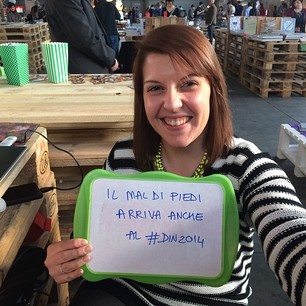 IL MAL DI PIEDI
ARRIVA ANCHE
AL #DIN2014